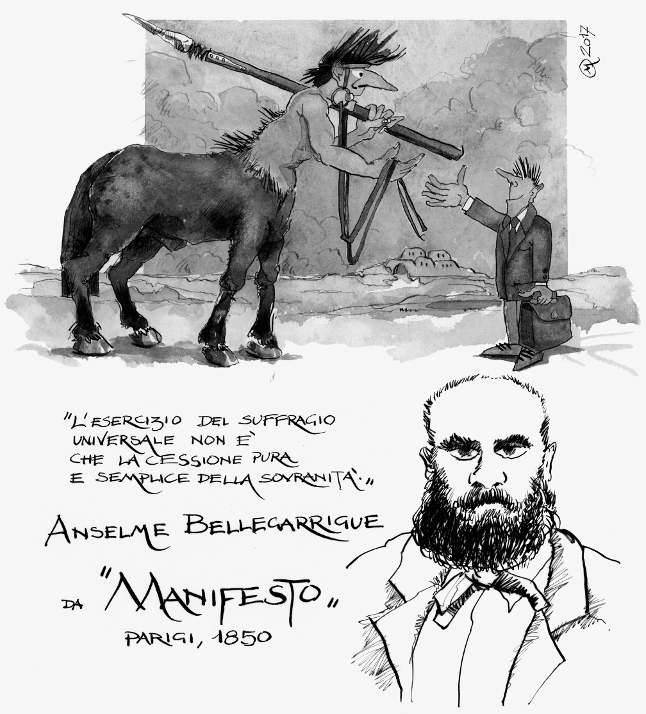 2017
"L'ESERCIZIO DEL SUFFRAGIO
UNIVERSALE NON E'
CHE LA CESSIONE PURA
E SEMPLICE DELLA SOVRANITA'."
ANSELME BELLEGARRIGUE
DA "MANIFESTO"
PARIGI, 1850